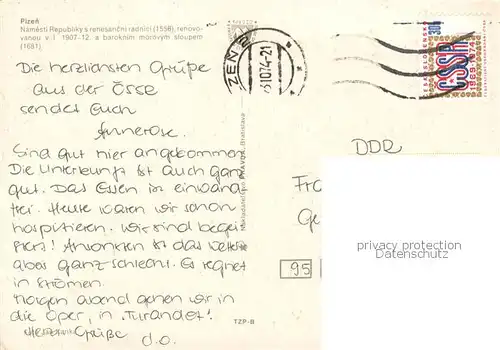 Plzeň
Náměstí Republiky s renesanční radnicí (1558), renovo-
vanou v l. 1907-12. a barokním morovým sloupem
(1681)
Die herzlichsten Grüße
aus der ČSSR
sendet Euch
Annerose.
Sind gut hier angekommen.
Die Unterkunft ist auch ganz
gut. Das Essen ist einwand
frei. Heute waren wir schon
hospitieren. Wir sind begei
stert! Ansonsten ist das Wetter
aber ganz schlecht. Es regnet
in Strömen.
Morgen abend gehen wir in
die Oper, in "Turandot"!
Herzliche Grüße
d.o.
Nakladatelství PRAVDA, Bratislava
TZP-B
PLZEŇ 2
10.74-21
ČESKOSLOVENSKO
30h
ČSSR
1969-1974
DDR
Fr
Ge
95
privacy protection
Datenschutz